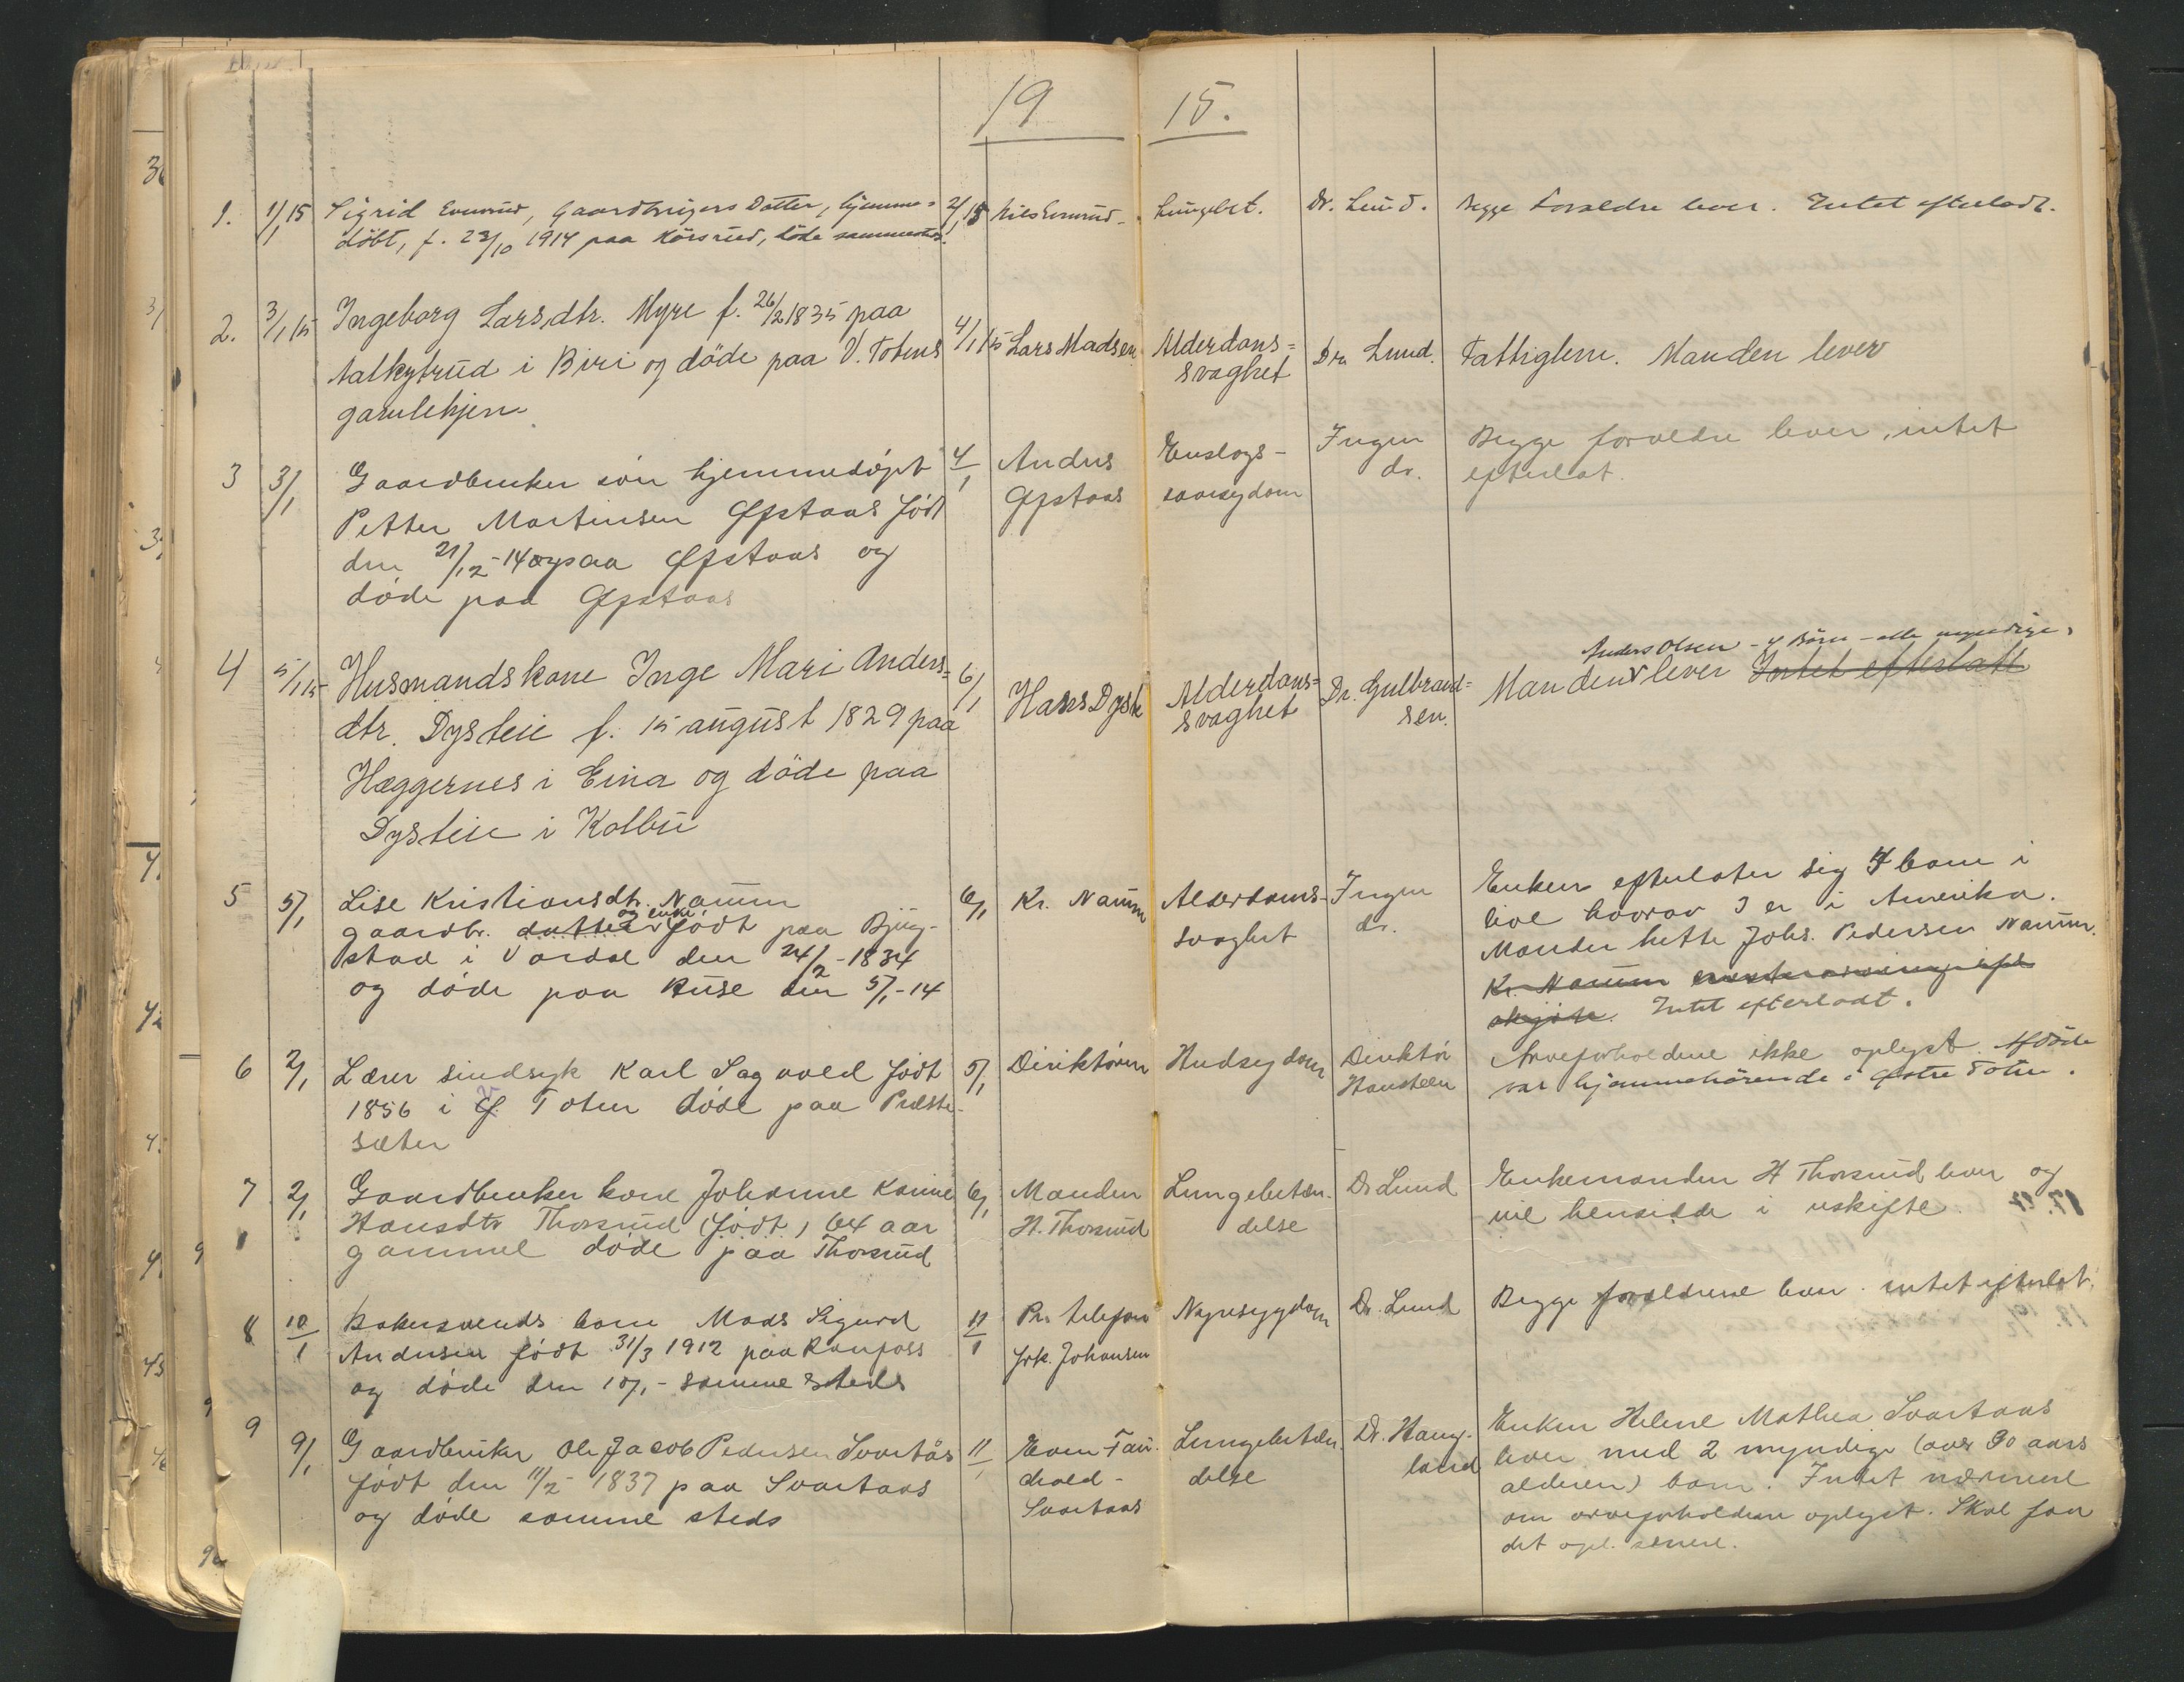 19 15.
1. 1/1 15 Sigrid Evenrud, Gaardbrugers Datter, hjemme= 2/1 15 Nils Evenrud Lungebet. Dr. Lund. Begge Forældre lever. Intet efterladt.
døbt, f. 23/10 1914 paa Kørsrud, døde sammesteds.
2. 3/1 15 Ingeborg Larsdtr. Myre f. 26/2 1835 paa 4/1 15 Lars Madsen Alderdoms= Dr. Lund. Fattiglem. Manden lever
i Biri og døde paa V. Totens svaghet
gamlehjem.
3 3/1 Gaardbruker søn hjemmedøpt 4/1 Andrs Engelsk- Ingen Begge forældre lever, intet
Petter Martinsen Øfstaas født Øfstaas dr. efterlat.
den 21/12-14 paa Øfstaas og
døde paa Øfstaas
Anders Olsen - Børn - alle myndige.
4 5/1 15 Husmandskone Inge Mari Anders= 6/1 Hans Dyste Alderdoms= Dr. Gulbrand= Manden lever Intet efterlatt
dtr. Dysteie f. 15 august 1829 paa svaghet sen.
Hæggernes i Eina og døde paa
Dysteie i Kolbu
5 5/1 Lise Kristiansdtr. Narum 6/1 Kr. Narum Alderdoms- Ingen Enken efterlater sig 4 barn i
og enke
gaardbr. datter født paa Bjug- svaghet dr. live hvorav 3 er i Amerika.
stad i Vardal den 24/2-1834 Manden hette Johs. Pedersen Narum.
og døde paa Ruse den 5/1-14 Kr. Narum
skjøte. Intet efterladt.
6 2/1 Lærer sindsyk Karl Sagvold født 5/1 Direktøren Hudsygdom Direktør Arveforholdene ikke oplyst. Afdøde
1856 i Ø. Toten døde paa Præste- Hansteen var hjemmehørende i Østre Toten.
sæter
7 2/1 Gaardbruker kone Johanne Karine 6/1 Manden Lungebetæn- Dr Lund Enkemanden H Thorsrud lever og
Hansdtr Thorsrud (født) 64 aar H. Thorsrud delse vil hensidde i uskifte.
gammel døde paa Thorsrud
8 10/1 Bakersvends barn Mads Sigurd 11/1 Pr. telefon Nyresygdom Dr. Lund Begge forældrene lever. intet efterlat.
Andersen født 31/3 1912 paa Raufoss frk. Johansen
og døde den 10/1- samme steds
9 9/1 Gaardbruker Ole Jacob Pedersen Svartås 11/1 Even Lungebetæn Dr. Haug- Enken Helene Mathea Svartaas
født den 11/2 1837 paa Svartaas Svartaas delse land lever med 2 myndige (over 30 aars
og døde samme steds alderen) barn. Intet nærmere
om arveforholdene oplyst. Skal faa
det opl. senere.